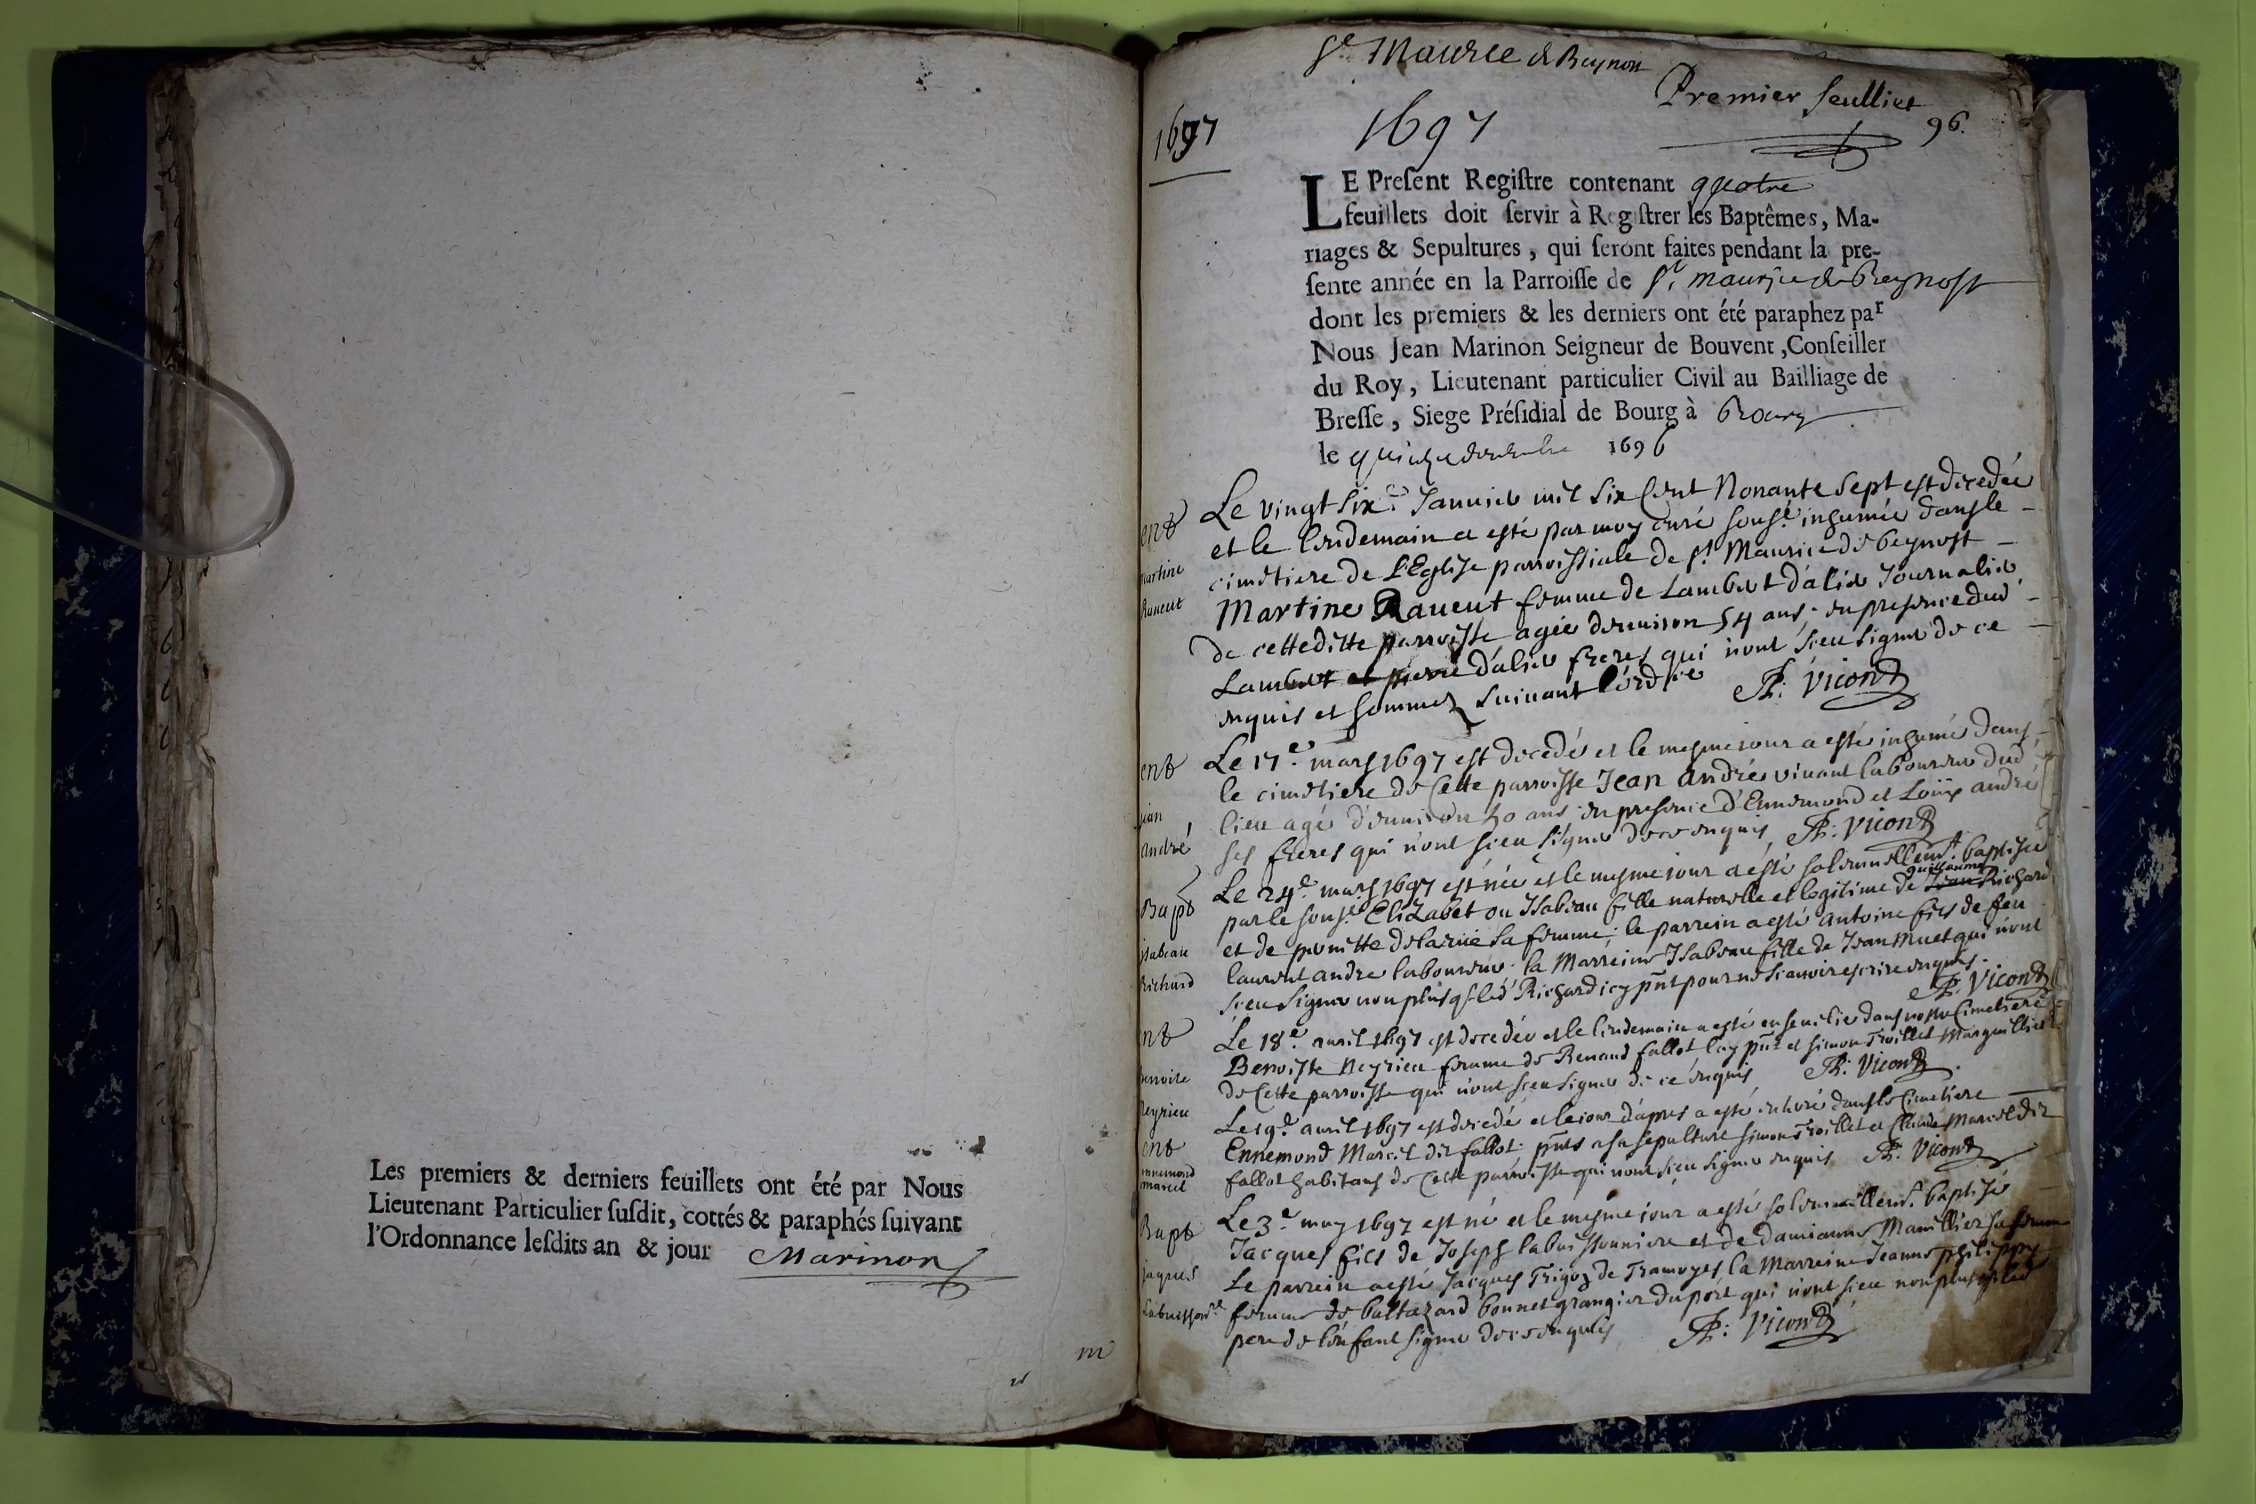 Les premiers & derniers feuillets ont été par Nous
Lieutenant Particulier suſdit, cottés & paraphés suivant
l'Ordonnance leſdits an & jour Marinon
St Maurice de Beynost
Premier feulliet
96.
1697
1697
LE Preſent Regiſtre contenant quatre
feuillets doit ſervir à Regiſtrer les Baptêmes, Ma-
riages & Sepultures, qui ſeront faites pendant la pre-
ſente année en la Parroiſſe de St maurice de Beynost
dont les premiers & les derniers ont été paraphez par
Nous Jean Marinon Seigneur de Bouvent, Conſeiller
du Roy, Lieutenant particulier Civil au Bailliage de
Breſſe, Siege Préſidial de Bourg à Bourg
le quinze decembre 1696
ent
martine
Raueut
Le vingt six.e Januier mil six Cent Nonante sept est decedée
et le lendemain a esté par moy curé soussé inhumée dans le
cimetiere de L'Eglise parroissiale de st Maurice de beynost
Martine Raueut femme de Lambert d'alier Journalier
de cette ditte parroisse agée denuiron 54 ans, en presence dud
Lambert et pierre d'alier freres qui n'ont sceu signer de ce
enquis et sommez suiuant l'ordce P: Vicond
ent
jean
andré
Le 17e mars 1697 est decedé et le mesme iour a esté inhumé dans
le cimetiere de Cette parroisse Jean andré viuant laboureur dud
lieu agé d'enuiron 50 ans en presence d'Ennemond et Loüis andré
ses freres qui n'ont sceu signer de ce enquis P: Vicond
Bapt
jsabeau
Richard
Le 24e mars 1697 est née et le mesme iour a esté solemnellemt baptisée
par le soussé Elizabet ou Isabeau fille naturelle et legitime de Jean guillaume Richard
et de pernette delarüe sa femme; le parrein a esté antoine fils de feu
laurent andre laboureur. la Marreine Isabeau fille de Jean muet qui n'ont
sceu signer non plus q led Richard icy pnt pour ne scauoir escrire enquis.
P: Vicond
ent
benoite
Neyrieu
Le 18e auril 1697 est decedée et le lendemain a esté enseuelie dans notre cimetiere
Benoiste Neyrieu femme de Renaud fallot luy pnt et simon Troillet Marguillier
de Cette parroisse qui n'ont sceu signer de ce enquis P: Vicond
ent
ennemond
marcel
Le 19e auril 1697 est decedé et le iour d'apres a esté enterré dans le Cimetiere
Ennemond Marcel dit fallot. pnts a sa sepulture simon Troillet et Claude Marcel dit
fallot habitans de Cette parroisse qui n'ont sceu signer enquis P: Vicond
Bapt
jaques
Labuissonre
Le 3e may 1697 est né et le mesme iour a esté solemnellemt baptisé
Jacques fils de Joseph labuissonniere et de damianne Manillier sa femme
Le parrein a esté Jacques Trigoz de Tramoyes la Marreine Jeanne philippy
femme de baltazard bonnet grangier du port qui n'ont sceu non plus q led
pere de lenfant signer de ce enquis P: Vicond